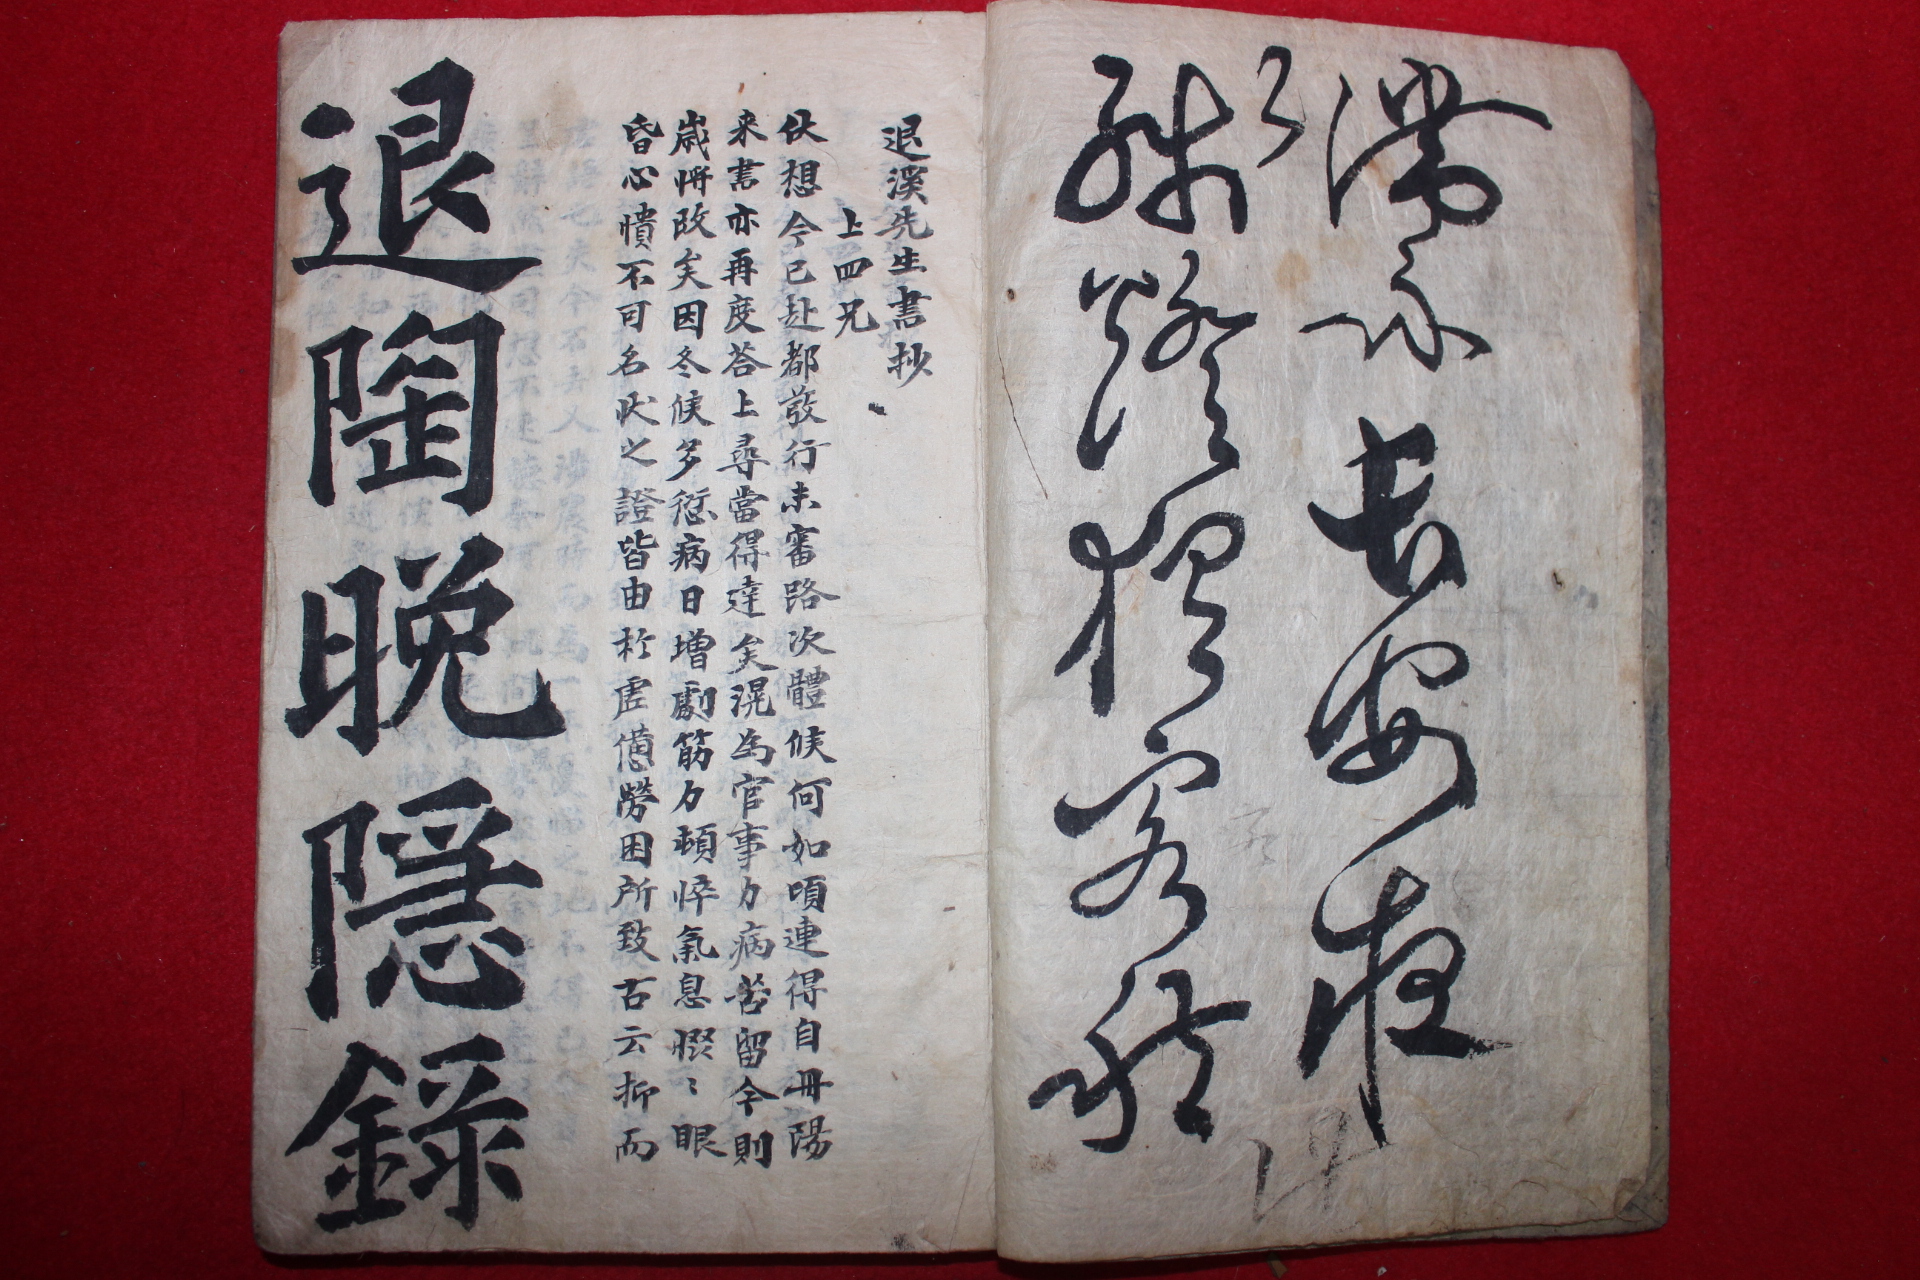 滯來長安夜
殘燈獨客愁
退溪先生書抄
上四兄
伏想今已赴都發行未審路次體候何如頃連得自丹陽
来書亦再度答上尋當得達矣滉为官事力病苦留今則
歲将改矣因冬候多愆病日增劇筋力頓悴氣息惙〻眼
昏心憒不可名狀之證皆由於虗憊勞困所致古云抑而
退陶晚隱錄